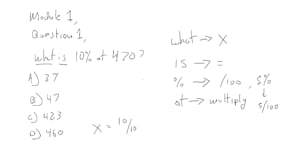 Module 1,
Question 1,
what is 10% of 470?
A) 37
B) 47
C) 423
D) 460
X = 10/10
what → X
IS → =
% → /100, 5%
↓
5/100
of → multiply